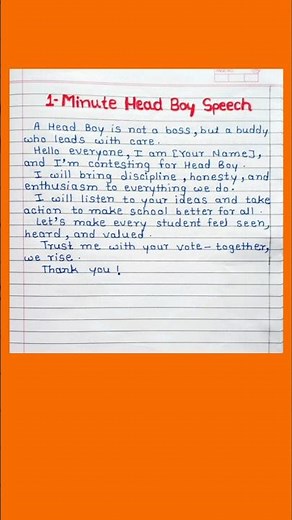 1-Minute Head Boy Speech
A Head Boy is not a boss, but a buddy
who leads with care.
Hello everyone, I am [Your Name],
and I'm contesting for Head Boy.
I will bring discipline, honesty, and
enthusiasm to everything we do.
I will listen to your ideas and take
action to make school better for all.
Let's make every student feel seen,
heard, and valued.
Trust me with your vote – together,
we rise.
Thank you!